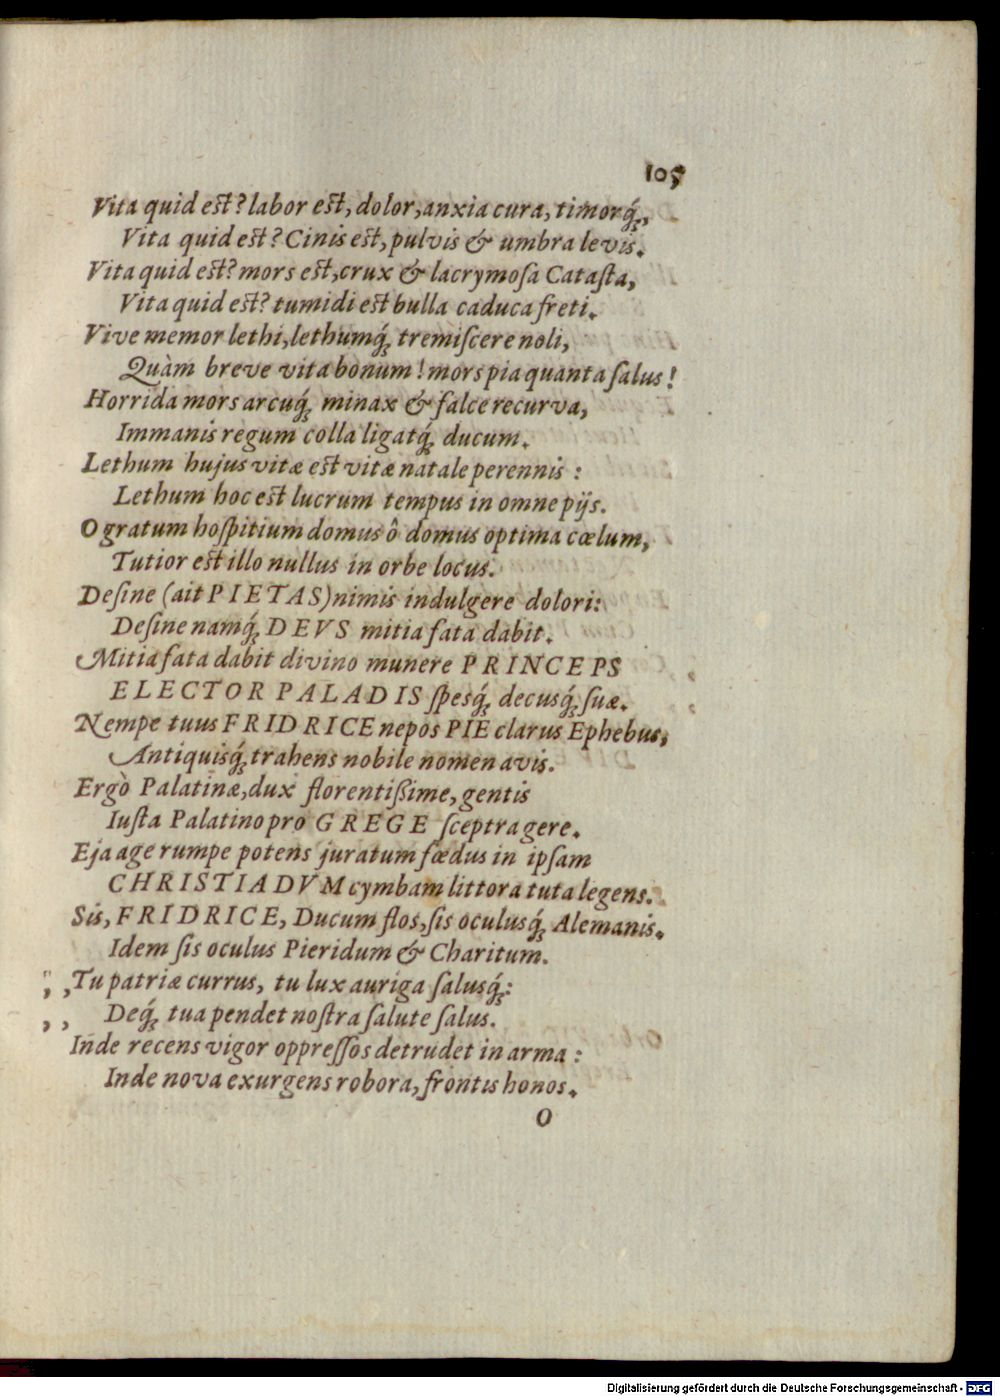 105
Vita quid est? labor est, dolor, anxia cura, timorq́;,
Vita quid est? Cinis est, pulvis & umbra levis.
Vita quid est? mors est, crux & lacrymoſa Cataſta,
Vita quid est? tumidi est bulla caduca freti.
Vive memor lethi, lethumq́; tremiſcere noli,
Quàm breve vita bonum! mors pia quanta ſalus!
Horrida mors arcuq́; minax & falce recurva,
Immanis regum colla ligatq́; ducum.
Lethum hujus vitæ est vitæ natale perennis:
Lethum hoc est lucrum tempus in omne pijs.
O gratum hoſpitium domus ô domus optima cœlum,
Tutior est illo nullus in orbe locus.
Deſine (ait PIETAS) nimis indulgere dolori:
Deſine namq́; DEVS mitia fata dabit.
Mitia fata dabit divino munere PRINCEPS
ELECTOR PALADIS ſpesq́; decusq́; ſuæ.
Nempe tuus FRIDRICE nepos PIE clarus Ephebus,
Antiquisq́; trahens nobile nomen avis.
Ergò Palatinæ, dux florentißime, gentis
Iuſta Palatino pro GREGE ſceptra gere.
Eja age rumpe potens juratum fœdus in ipſam
CHRISTIADVM cymbam littora tuta legens.
Sis, FRIDRICE, Ducum flos, ſis oculusq́; Alemanis.
Idem ſis oculus Pieridum & Charitum.
,, Tu patriæ currus, tu lux auriga ſalusq́;:
,, Deq́; tua pendet noſtra ſalute ſalus.
Inde recens vigor oppreſſos detrudet in arma:
Inde nova exurgens robora, frontis honos.
O
Digitalisierung gefördert durch die Deutsche Forschungsgemeinschaft - DFG